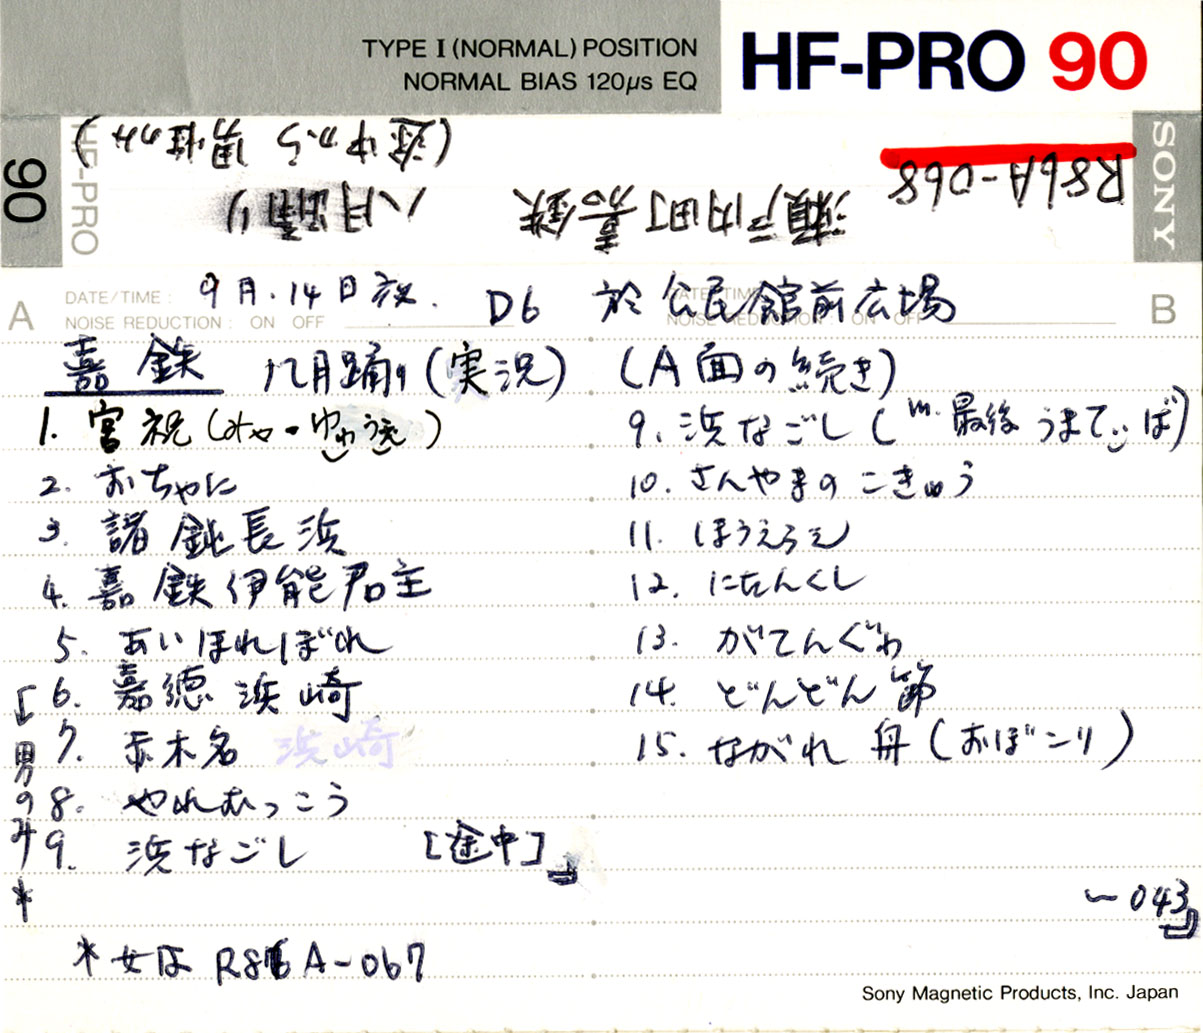 TYPE I (NORMAL) POSITION
NORMAL BIAS 120μs EQ
HF-PRO 90
90
HF-PRO
SONY
R86A-068
瀬戸内町嘉鉄 八月踊り
(途中から男性のみ)
A
DATE/TIME: 9月.14日夜. D6 於 公民館前広場
NOISE REDUCTION: ON OFF
DATE/TIME
NOISE REDUCTION: ON OFF
B
嘉鉄 八月踊り(実況)
1. 宮祝(みゃ・ゆわうえ)
2. おちゃに
3. 諸鈍長浜
4. 嘉鉄伊能君主
5. あいほれぼれ
「6. 嘉徳浜崎
7. 赤木名 浜崎
8. やれむっこう
9. 浜なごし [途中]」
男のみ*
*女は R86A-067
(A面の続き)
9. 浜なごし(m.最後 うまてぃば)
10. さんやまのこきゅう
11. ほうえらえ
12. にせんくし
13. がてんぐゎ
14. どんどん節
15. ながれ舟(おぼこり)
~043」
Sony Magnetic Products, Inc. Japan